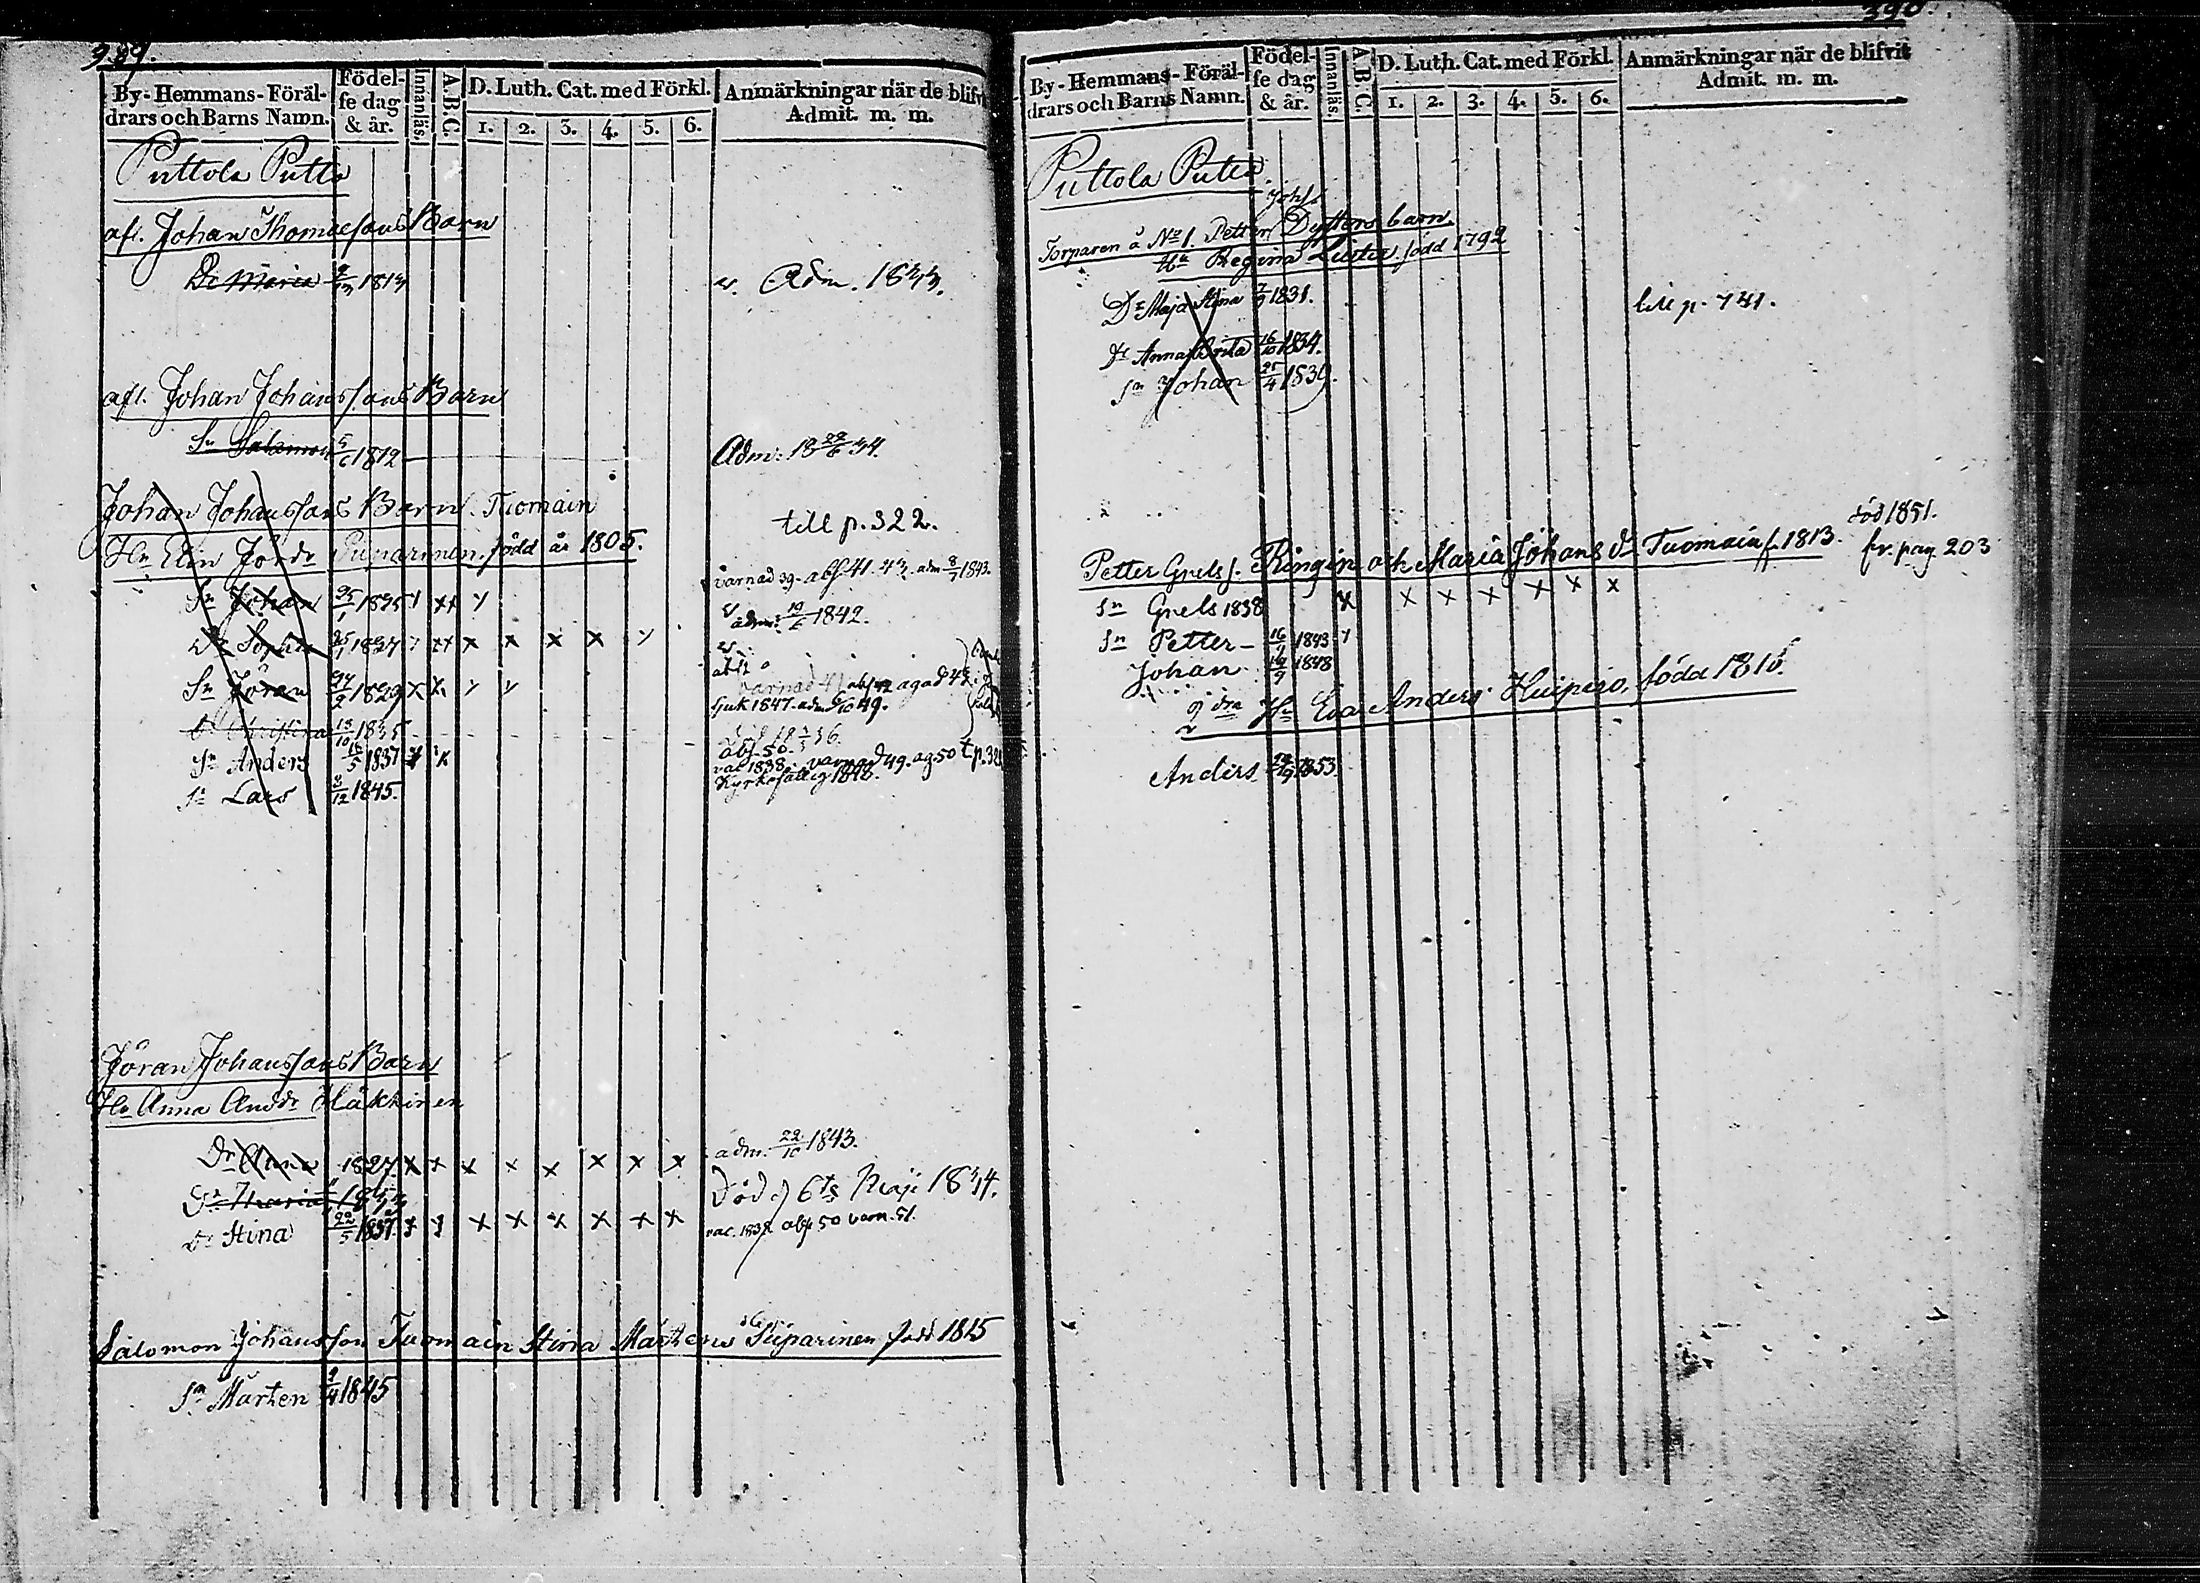 389.
By- Hemmans- Föräl-
drars och Barns Namn.
Födel-
se dag
& år.
Innanläs.
A. B. C.
D. Luth. Cat. med Förkl.
1. 2. 3. 4. 5. 6.
Anmärkningar när de blifvit
Admit. m. m.
Puttola Putto
afl. Johan Thomaessons Barn
Dr Maria 1813 v. Adm. 1833.
afl. Johan Johanssons Barn
Sn Salomon 5/6 1812 Adm: 18 22/6 34.
Johan Johanssons Barn Tuomain
till p. 322.
Hu Elin Jördr Siiparinen född år 1805.
Sn Johan 25/1 1825 varnad 39. abs. 41. 43. adm 8/7 1843.
Dr Sophia 25/1 1827 x x x x x adm: 19/6 1842.
Sn Jöran 24/2 1829 x varnad 41 abs 42 agad 43
sjuk 1847. adm 49.
Dr Christina 13/10 1835 död 18 36.
Sn Anders 15/5 1837 x x abs. 50.
vac 1838. varnad 49. ag. 50 t. p. 321
Sn Lars 8/12 1845. Kyrkofällig 1848.
Jöran Johanssons Barn
Hu Anna Andsdr Häkkinen
Dr Anna 1827 x x x x x x x x adm. 22/10 1843.
Dr Maria 1833 Död d 6te Maji 1834.
Dr Stina 22/5 1837 x x x x x x x x vac. 1838. abs 50 varn. 51.
Salomon Johansson Tuomain Stina Mårtens dr Siiparinen född 1815
Sn Mårten 9/4 1845
390.
By- Hemmans- Föräl-
drars och Barns Namn.
Födel-
se dag
& år.
Innanläs.
A. B. C.
D. Luth. Cat. med Förkl.
1. 2. 3. 4. 5. 6.
Anmärkningar när de blifvit
Admit. m. m.
Puttola Putto
Johs
Torparen å No 1. Petter Dysters barn.
Hu Regina Lüster född 1792
Dr Maja Stina 7/9 1831. till p. 741.
Dr Anna Brita 16/10 1834.
Sn Johan 25/4 1839.
död 1851.
Petter Grels s. Ringin och Maria Johans dr Tuomain f. 1813. fr. pag 203
Sn Grels 1838 x x x x x x x
Sn Petter - 16/9 1843
Johan 1848
g dra Hu Eva Anders Huipero, född 1816.
Anders 1853.